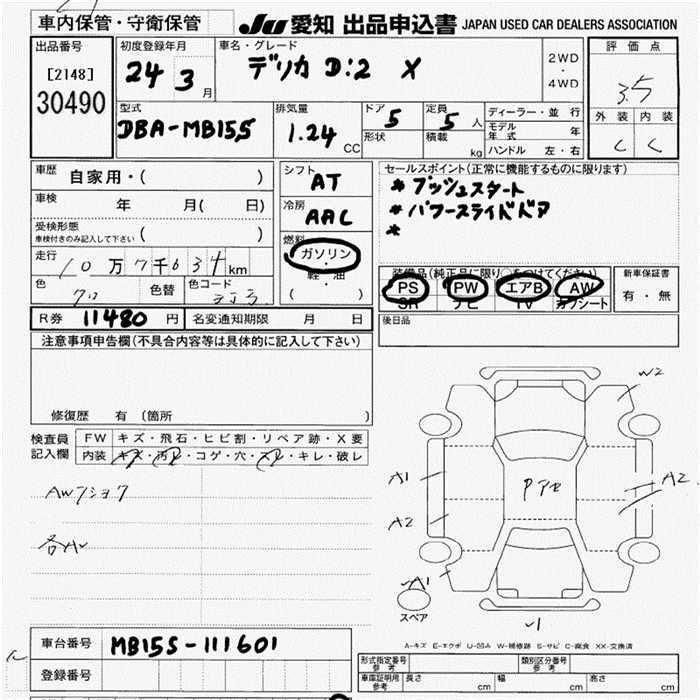 車内保管・守衛保管
JU 愛知 出品申込書 JAPAN USED CAR DEALERS ASSOCIATION
出品番号 初度登録年月 車名・グレード 2WD ・ 4WD 評価点
[2148]
30490 24 3月 デリカ D:2 X 3.5
型式 排気量 ドア 5 定員 5人 ディーラー・並行 外装 内装
DBA-MB15S 1.24 CC 形状 積載 kg モデル年式 年 C C
ハンドル 左・右
車歴 自家用・( ) シフト AT セールスポイント(正常に機能するものに限ります)
車検 年 月( 日) 冷房 AAC *プッシュスタート
*パワースライドドア
*
受検形態 車検付きのみ記入して下さい ( ) 燃料 ガソリン・軽・油 ( )
走行 10万7千634km
装備品(純正品に限り○をつけてください) 新車保証書
色 クロ 色替 色コード ZJ3 PS PW エアB AW 有・無
SR ナビ TV カワシート
R券 11480円 名変通知期限 月 日 後日品
注意事項申告欄(不具合内容等は具体的に記入して下さい)
修復歴 有 (箇所 )
検査員記入欄 FW キズ・飛石・ヒビ割・リペア跡・X要
内装 キズ・汚れ・コゲ・穴・スレ・キレ・破レ
AWフショク
各AU
W2
A1
A2
A2
A1
スペア
A-キズ E-エクボ U-凹み W-補修跡 S-サビ C-腐食 XX-交換済
車台番号 MB15S-111601
登録番号
形式指定番号 参考 類別区分番号 参考
車庫証明用 参考 長さ cm 幅 cm 高さ cm